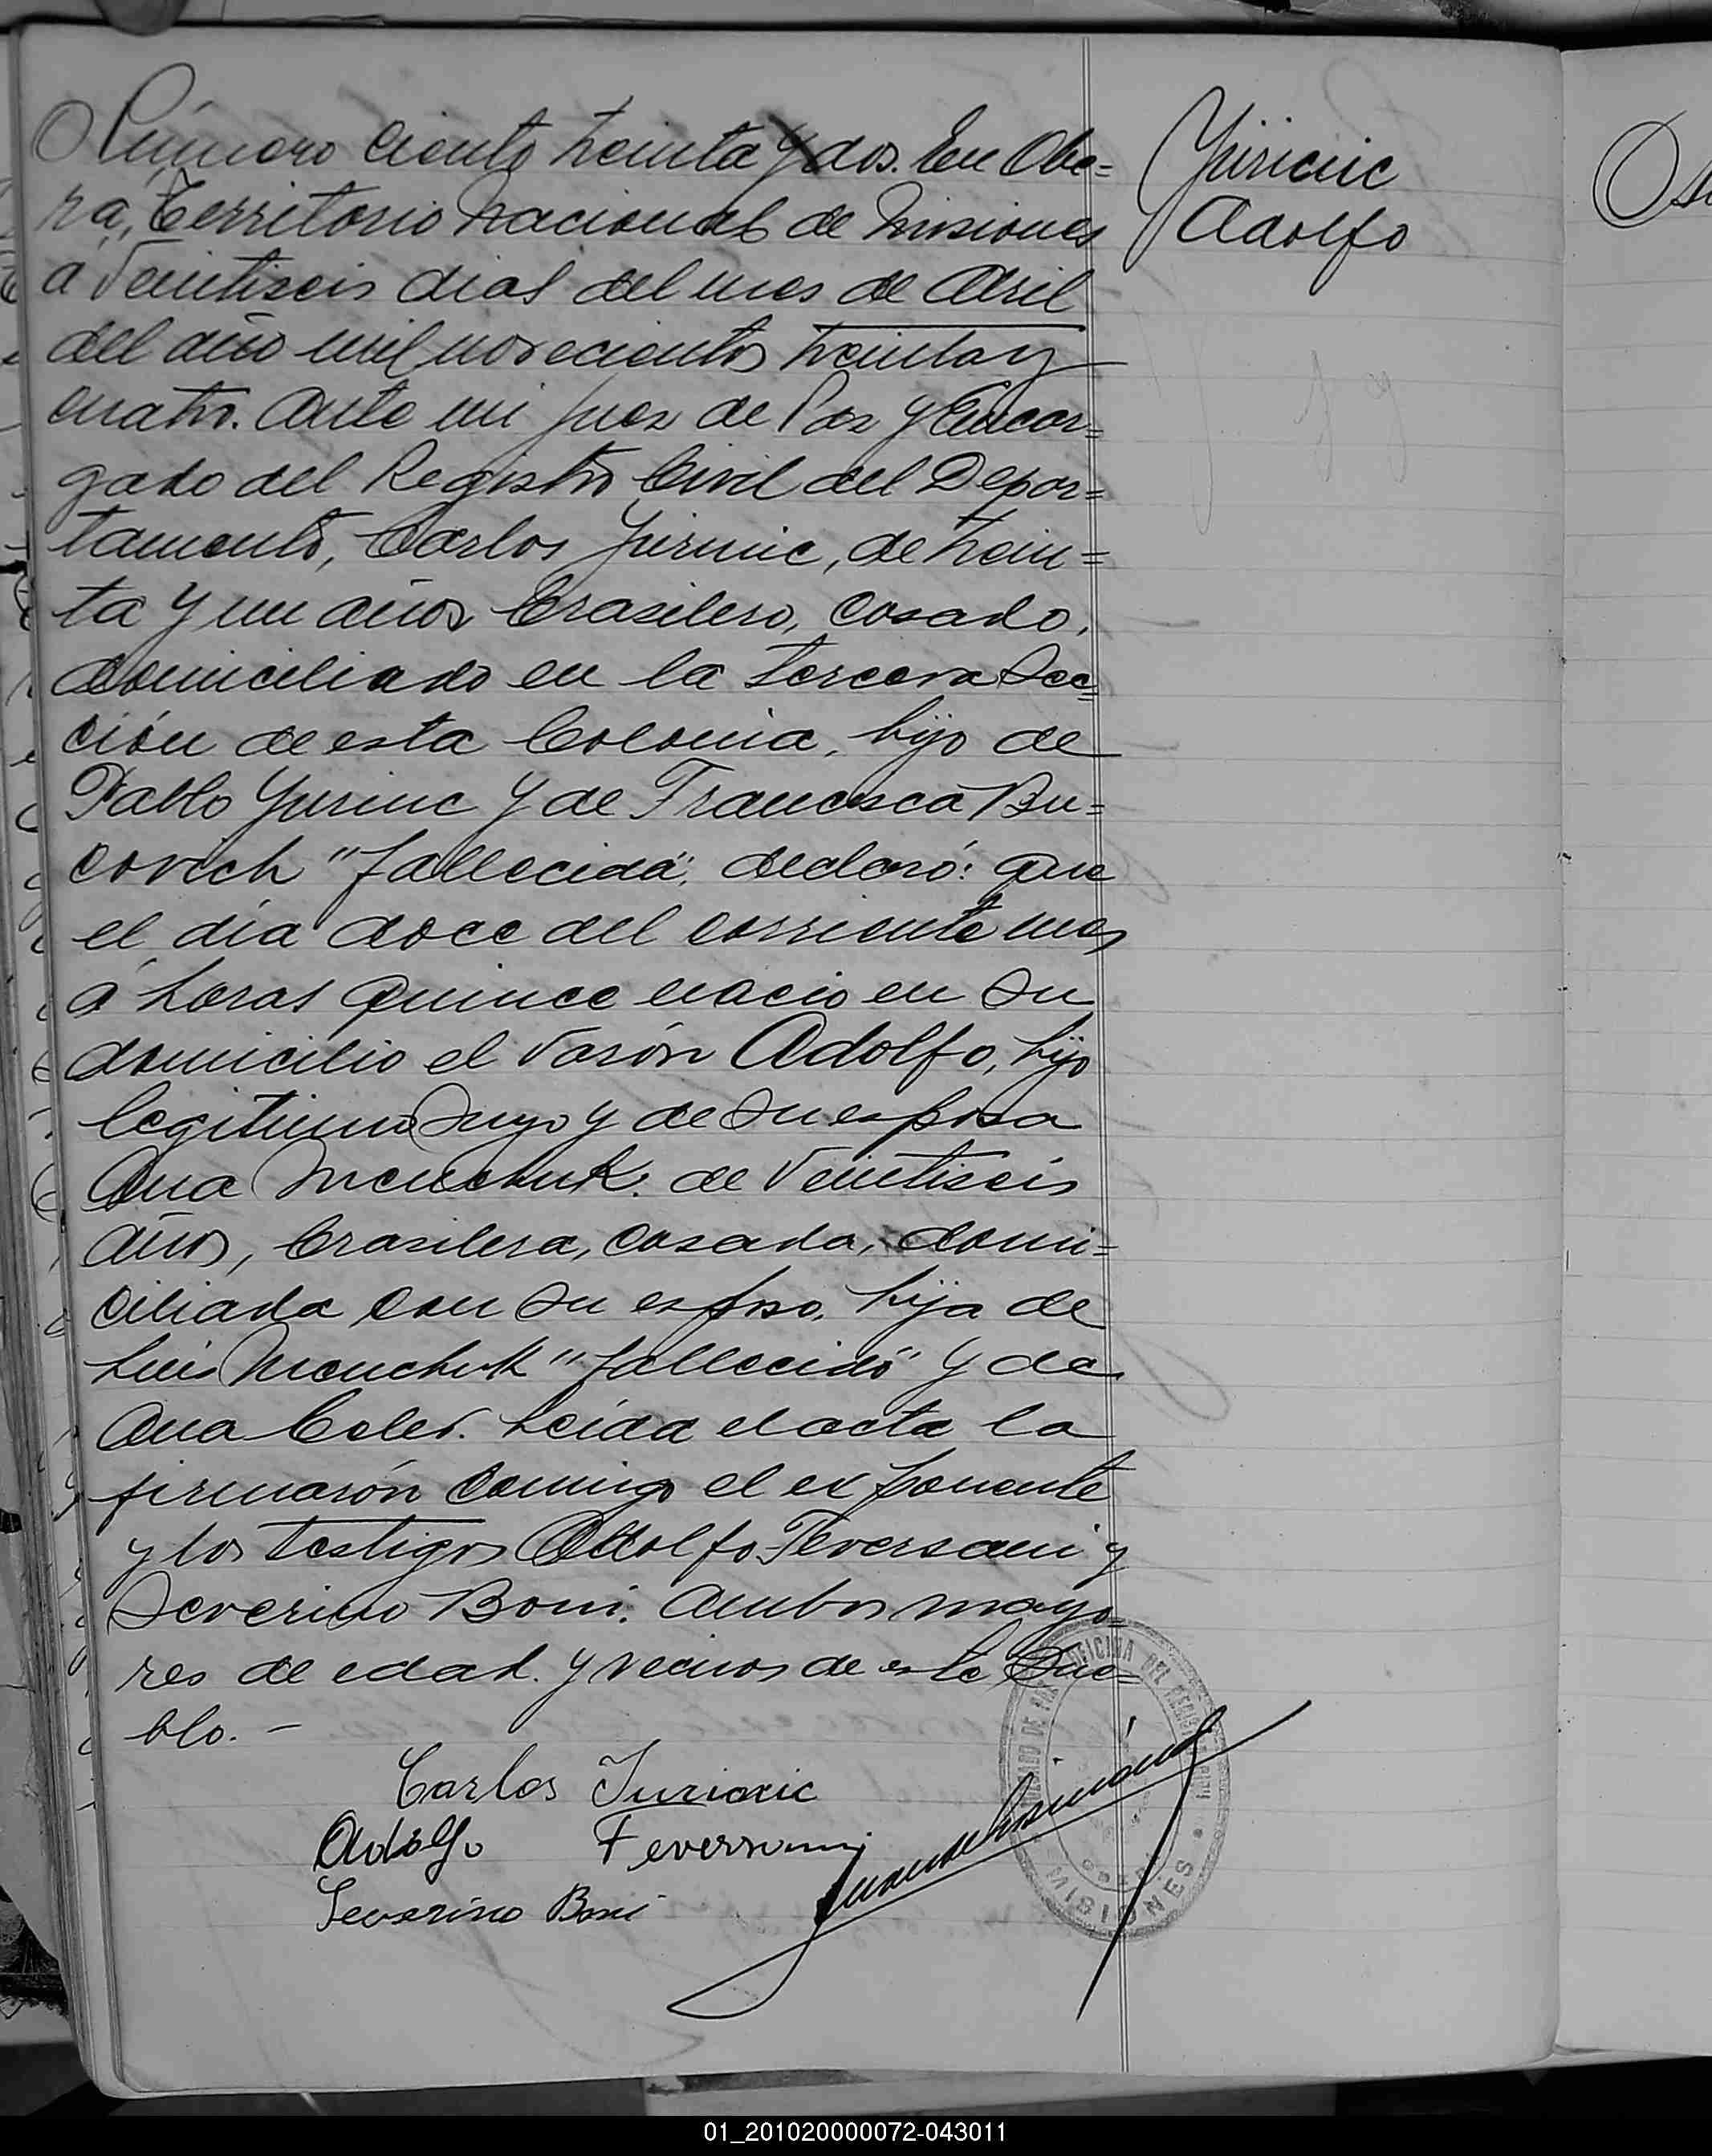 Número ciento treinta y dos. En Obe=
rá, Territorio Nacional de Misiones
a veintiseis dias del mes de Abril
del año mil novecientos treinta y
cuatro. Ante mi Juez de Paz y Encar=
gado del Registro Civil del Depar=
tamento, Carlos Yurinic, de trein=
ta y un años brasilero, casado,
domiciliado en la tercera Sec=
ción de esta Colonia, hijo de
Pablo Yurinic y de Francisca Bu=
covich "fallecida", declaró: que
el dia doce del corriente mes
á horas quince nacio en su
domicilio el varón Adolfo, hijo
legitimo suyo y de su esposa
Ana Menchuk. de veintiseis
años, brasilera, casada, domi=
ciliada con su esposo, hija de
Luis Menchuk "fallecido" y de
Ana . Leida el acta la
firmarón conmigo el exponente
y los testigos Adolfo Feversani y
Severino Boni. Ambos mayo=
res de edad. y vecinos de este Pue=
blo. —
Yuricic
Adolfo
Carlos Juricic
Adolfo Feversani
Severino Boni
OFICINA DEL REGISTRO CIVIL
JUZGADO DE PAZ
MISIONES
01_201020000072-043011